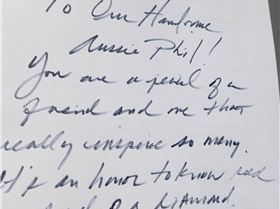 To Our Handsome
Aussie Phil!
You are a jewel of a
friend and one that
really inspire so many.
It's an honor to know
of a diamond.